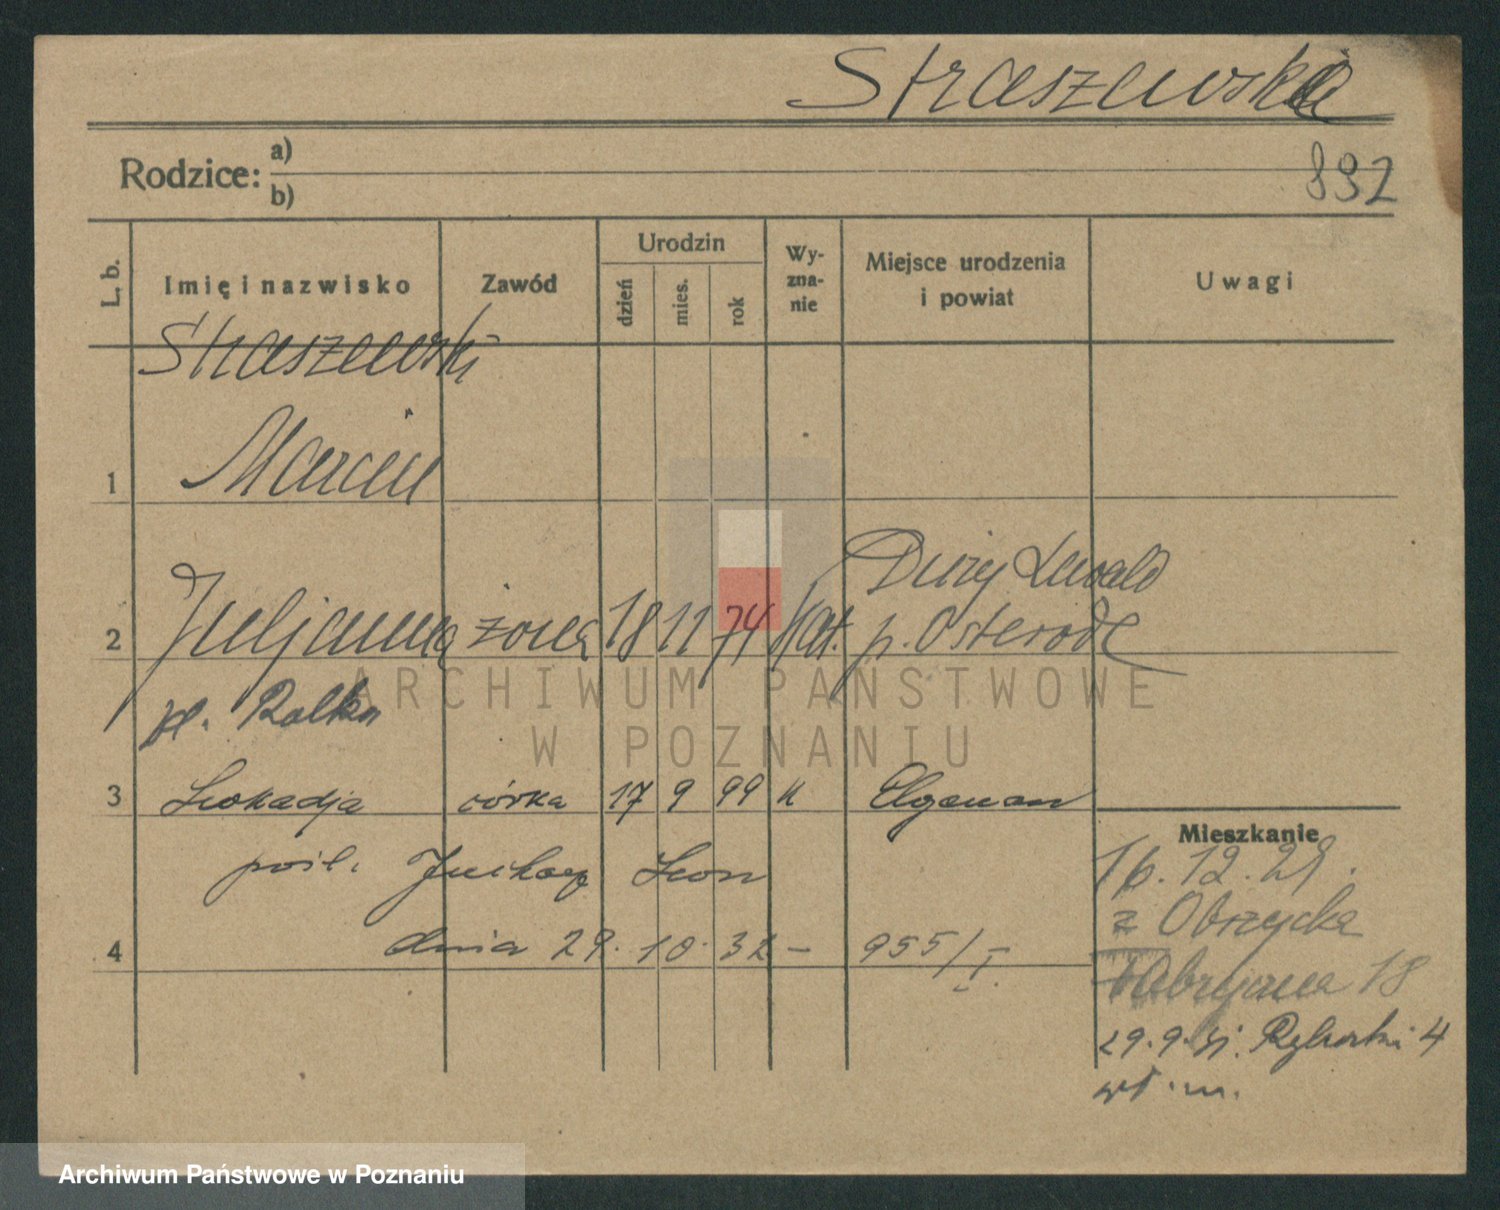 Straszewska
Rodzice: a)
b)
892
L. b.
Imię i nazwisko
Zawód
Urodzin
dzień
mies.
rok
Wy-
zna-
nie
Miejsce urodzenia
i powiat
Uwagi
Straszewski
1 Marcin
Duży Lewald
2 Juljanna żona 18 11 74 kat. p. Osterode
Ralka
3 Leokadja córka 17 9 99 k
Mieszkanie
pośl. Leon
16.12.29.
z Obrzycka
4 dnia 29. 10. 32 – 955/I.
18
29.9.31. Rybaki 4
ARCHIWUM PAŃSTWOWE
W POZNANIU
Archiwum Państwowe w Poznaniu